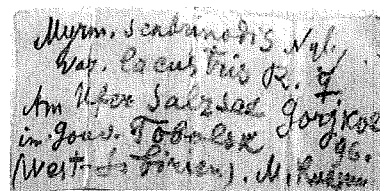 Myrm. scabrinodis Nyl.
var. lacustris R. ☿
Am Ufer Salzsee Gorjkoe
in Gouv. Tobolsk 96.
(West-Sibirien). M. Ruzsky